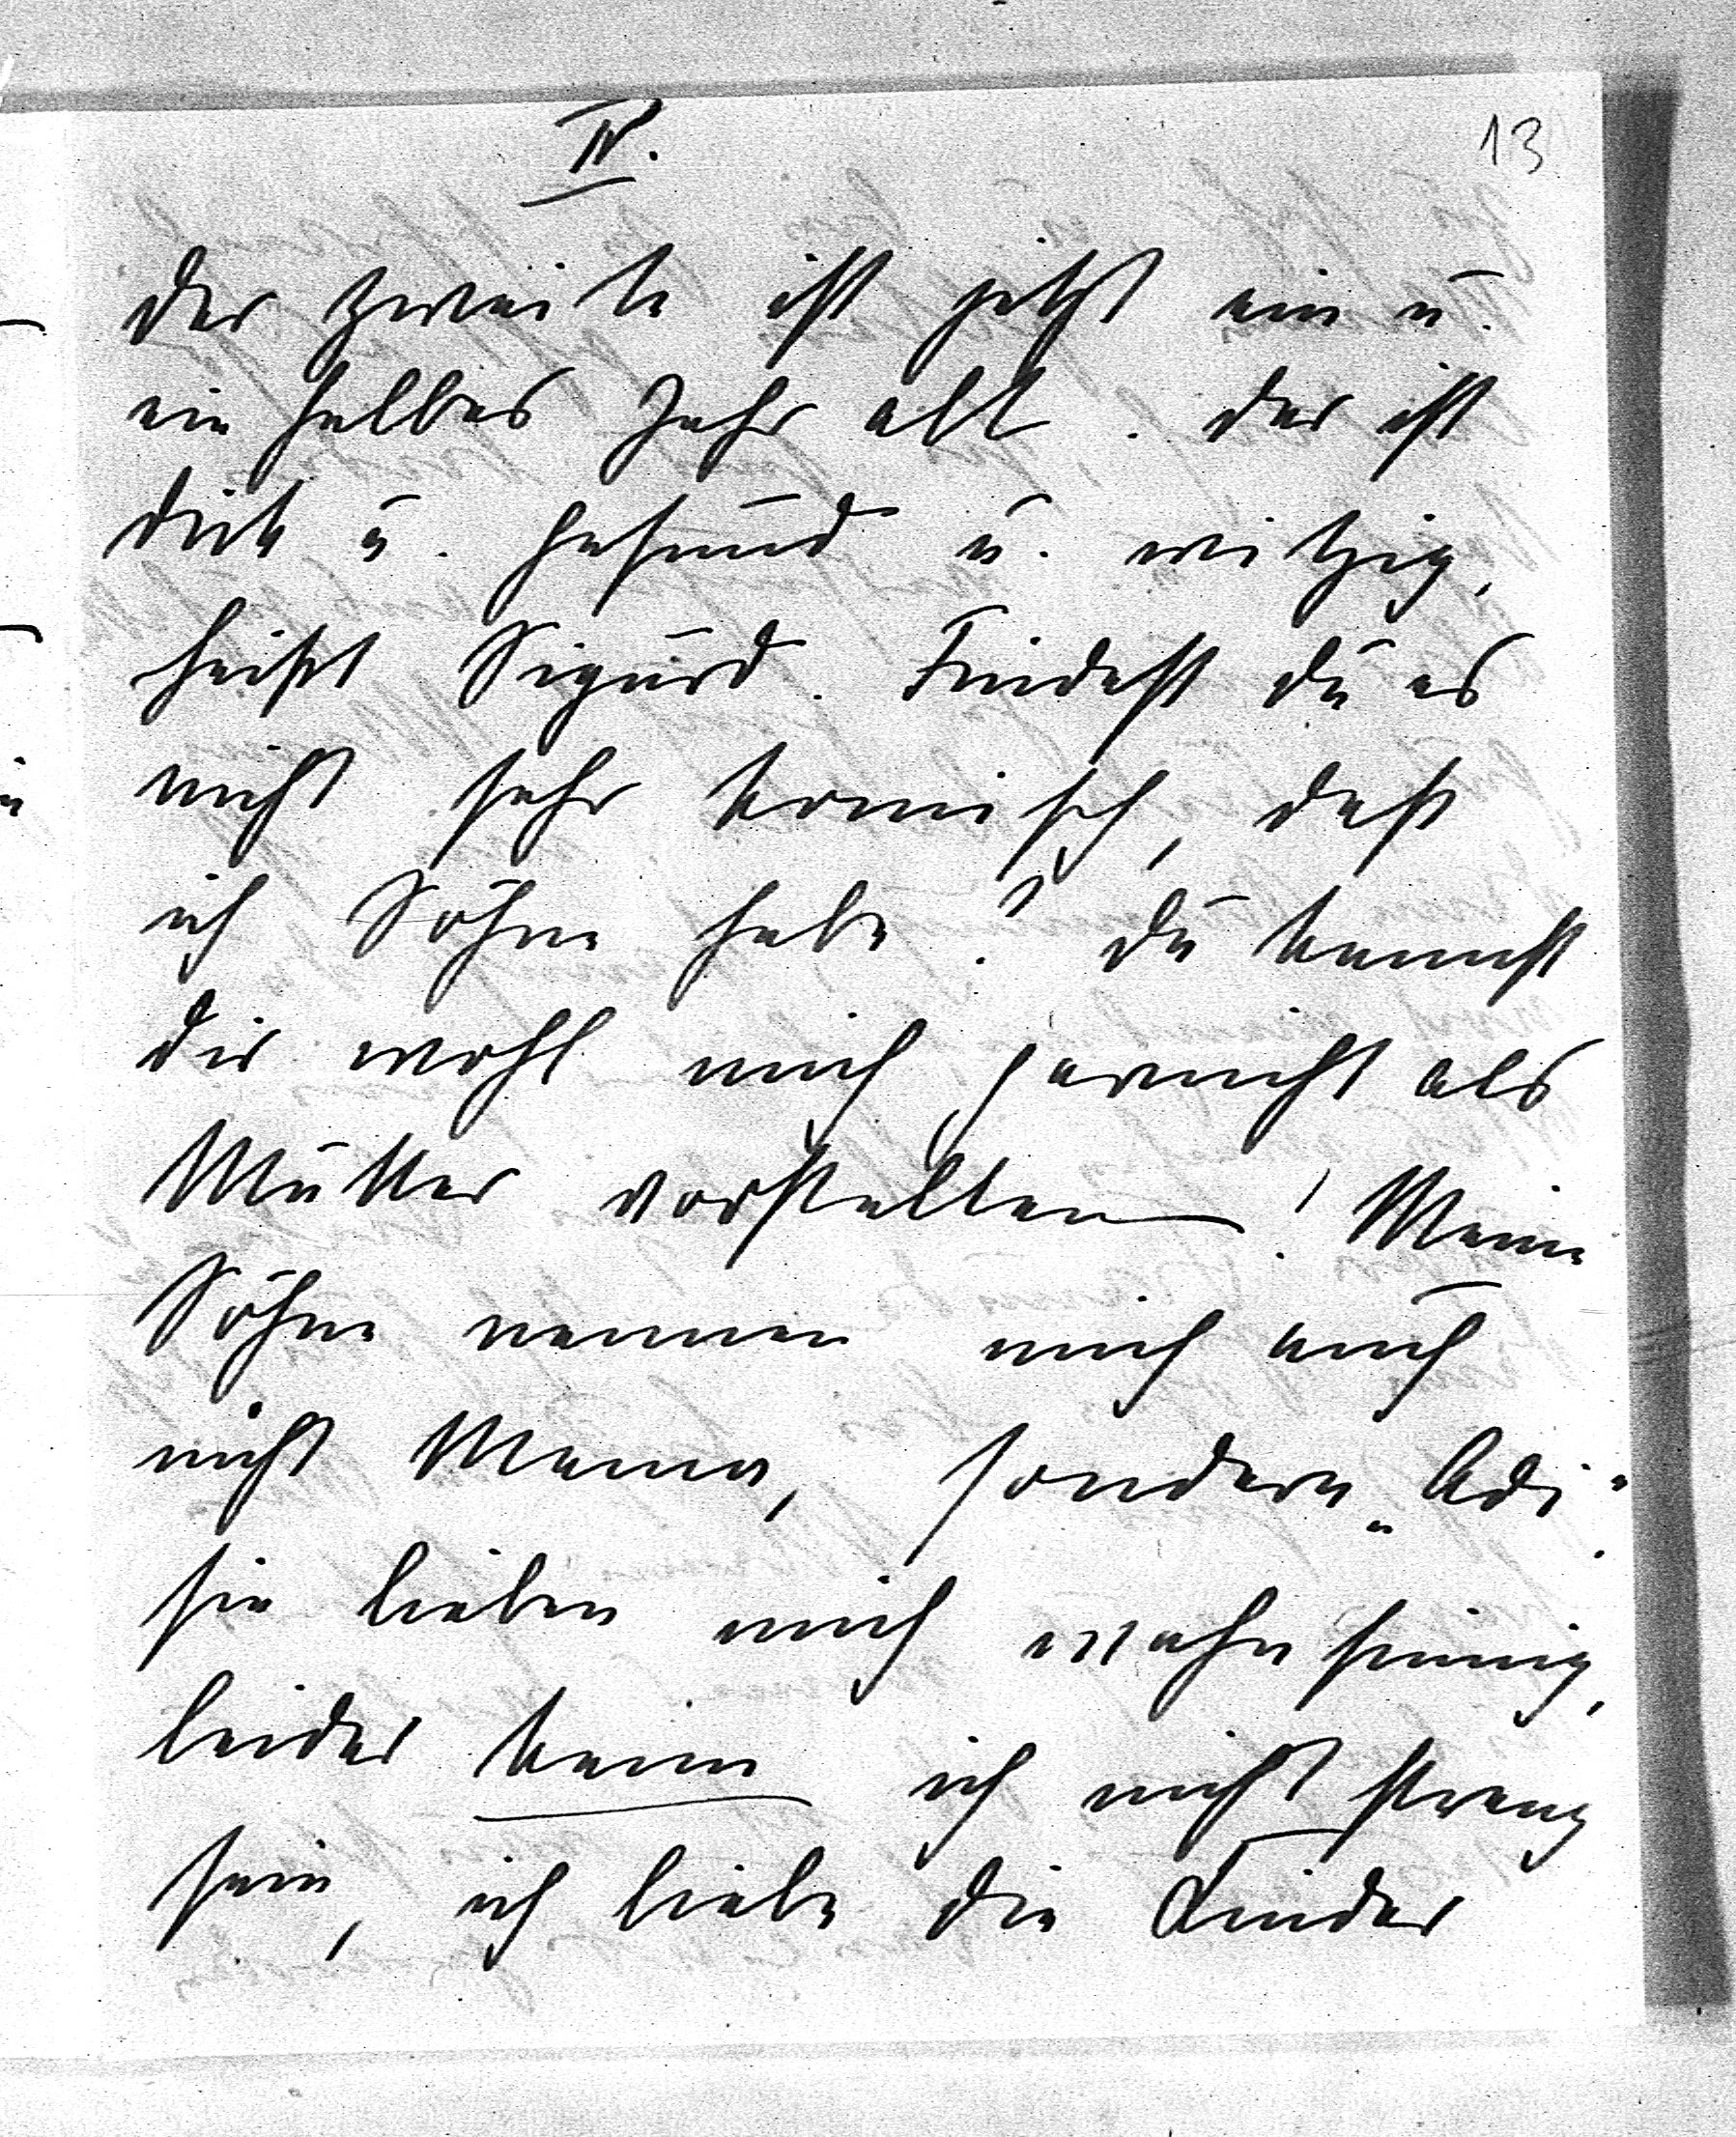 IV.
13
der zweite ist jetzt ein u.
ein halbes Jahr alt. Der ist
dick u. gesund u. witzig,
heißt Sigurd. Findest du es
nicht sehr komisch, daß
ich Söhne habe? Du kannst
dir wohl mich garnicht als
Mutter vorstellen! Meine
Söhne nennen mich auch
nicht Mama, sondern „Adi“.
sie lieben mich wahnsinnig,
leider kann ich nicht streng
sein, ich liebe die Kinder